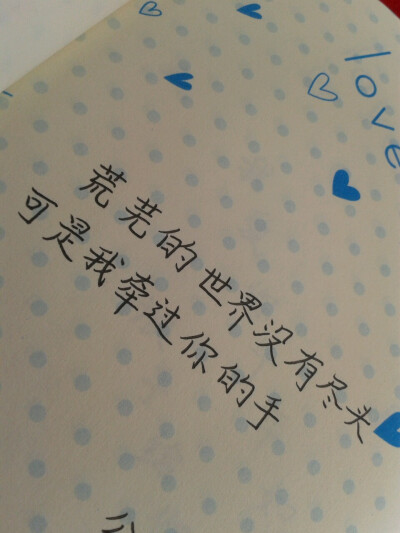 love
荒芜的世界没有尽头
可是我牵过你的手